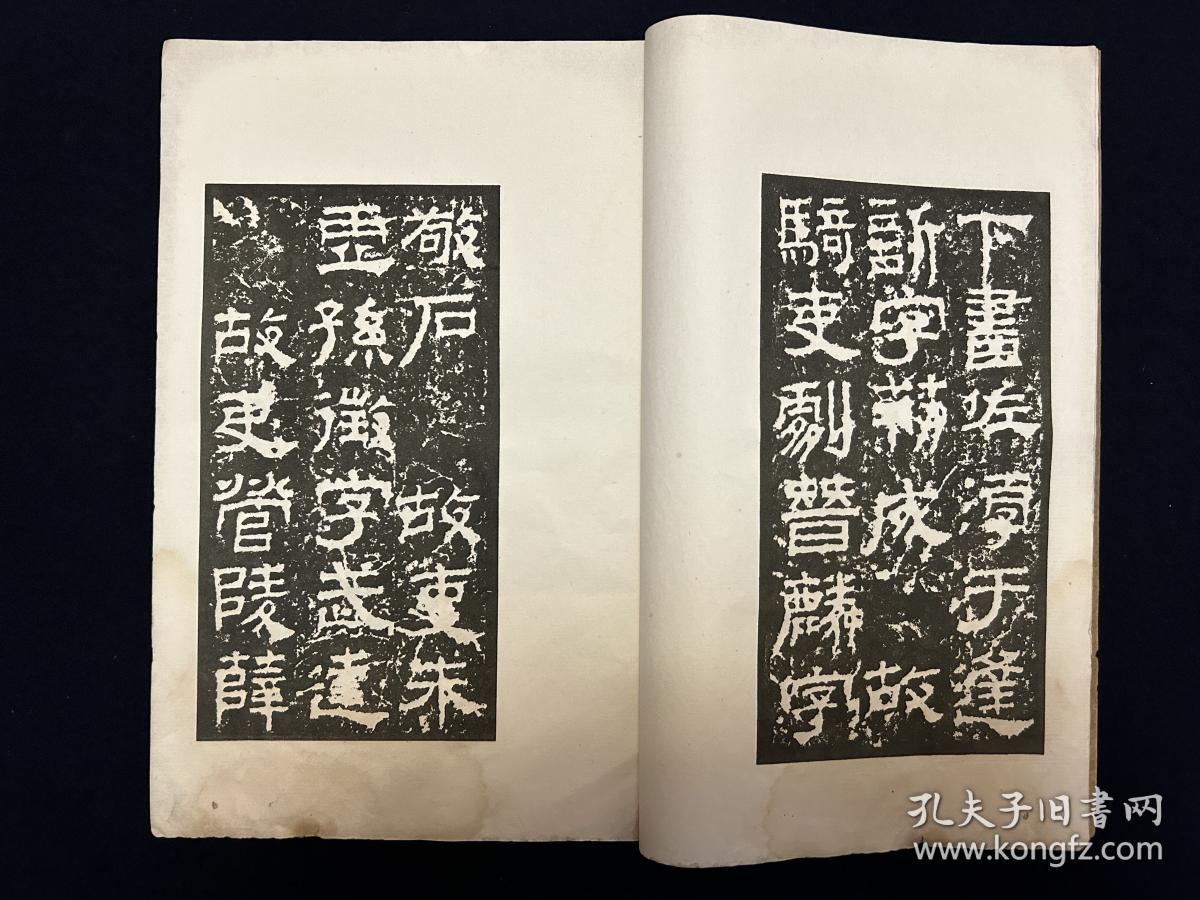 下書佐淳于逢
訢字成 故
騎吏劇晉麟字
敬石 故吏朱
虛孫徵字武達
故吏營陵薛
孔夫子旧書网
www.kongfz.com